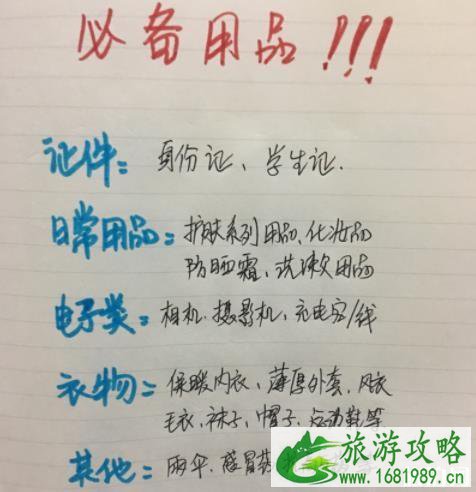 必备用品!!!
证件: 身份证、学生证.
日常用品: 护肤系列用品、化妆品
防晒霜、洗漱用品
电子类: 相机、摄影机、充电宝/线
衣物: 保暖内衣、薄厚外套、风衣
毛衣、袜子、帽子、运动鞋等
其他: 雨伞、感冒药
旅游攻略
www.1681989.com